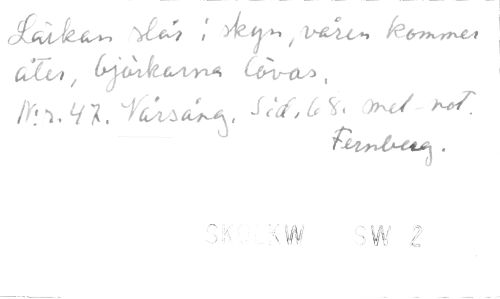 Lärkan slår i skyn, våren kommer
åter, björkarna lövas.
N:r. 47. Vårsång. Sid. 68. mel-not.
Fernberg.
SW 2